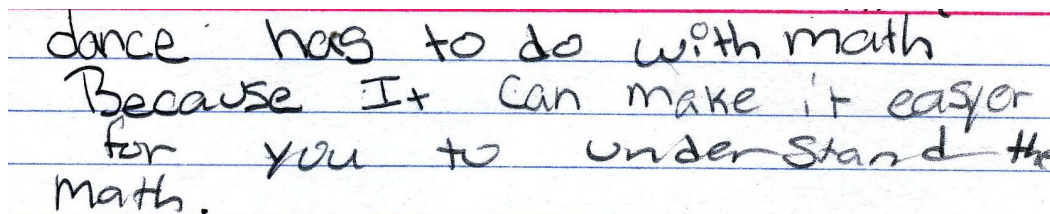 dance has to do with math
Because It can make it easyer
for you to understand the
math.